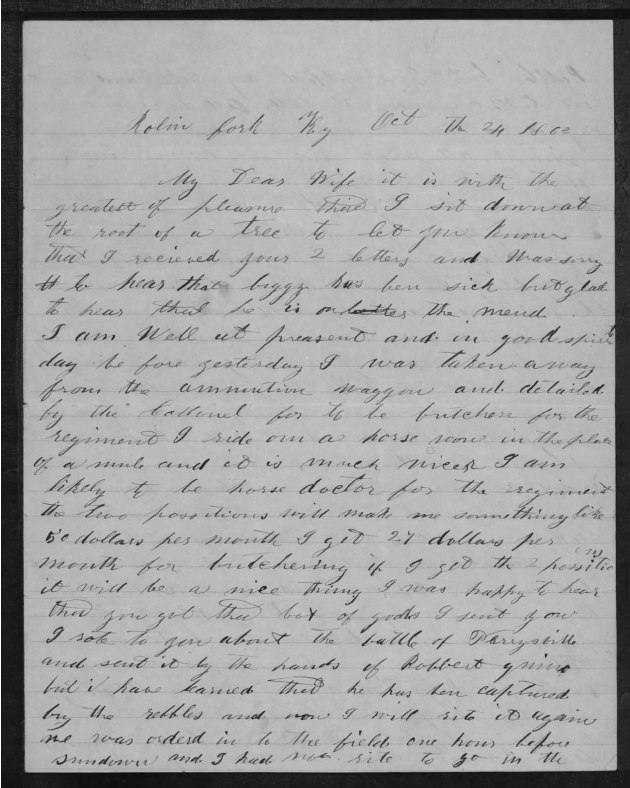 Rolin fork Ky Oct th 24 1862
My Dear Wife it is with the
greatest of pleasure that I sit down at
the root of a tree to let you know
that I recieved your 2 letters and was sorry
to hear that has ben sick but glad
to hear that he is on the mend
I am Well at preasent and in good spirits
day be fore yesterday I was taken away
from the ammution waggon and detailed
by the Collonel for to be butcher for the
regiment I ride on a horse now in the place
of a mule and it is much nicer I am
likely to be horse doctor for the regiment
the two possitions will make me something like
50 dollars per month I get 27 dollars per
month for butchering if I get the 2 possitions
it will be a nice thing I was happy to hear
that you got that box of goods I sent you
I rote to you about the battle of Perrysville
and sent it by the hands of Robbert
but i have learned that he has ben captured
by the rebbles and now I will rite it again
we was orderd in to the field one hour before
sundown and I had no rite to go in the